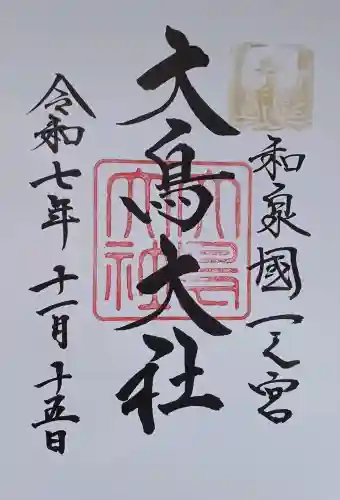 和泉國一之宮
大鳥大社
令和七年十一月十五日
大鳥大社